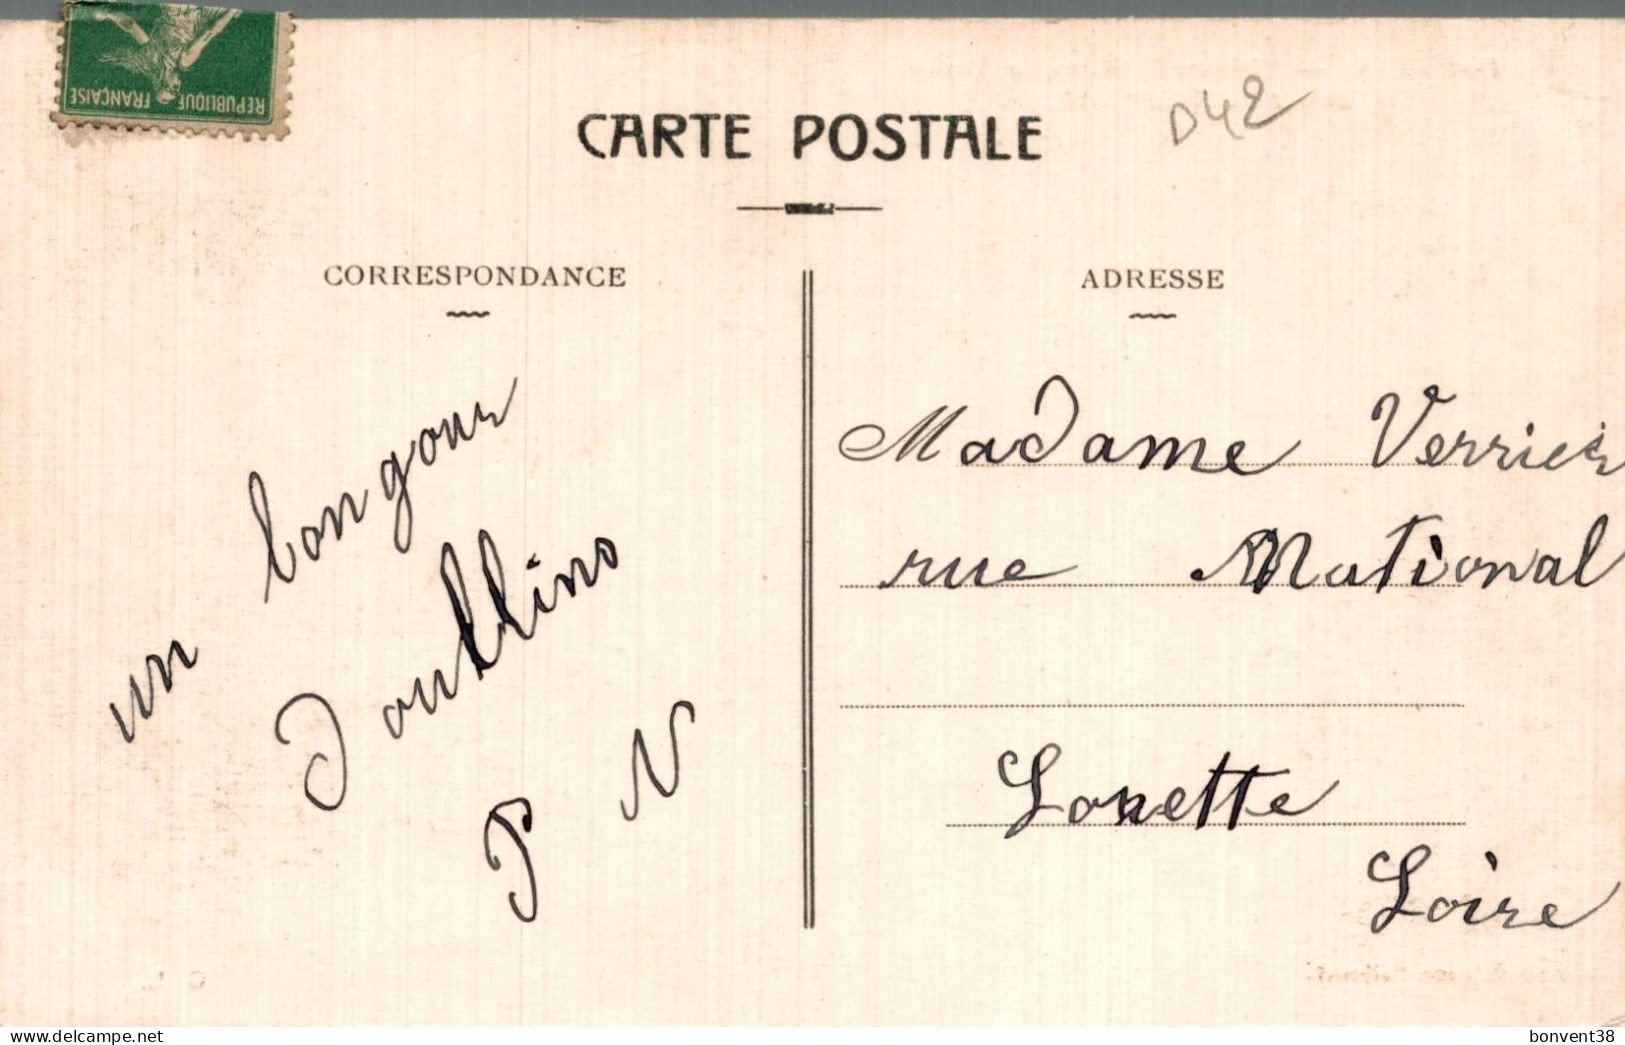 REPUBLIQUE FRANÇAISE
CARTE POSTALE
D42
CORRESPONDANCE
ADRESSE
un bon gour
P V
Madame Verrier
rue National
Lorette
Loire
bonvent38